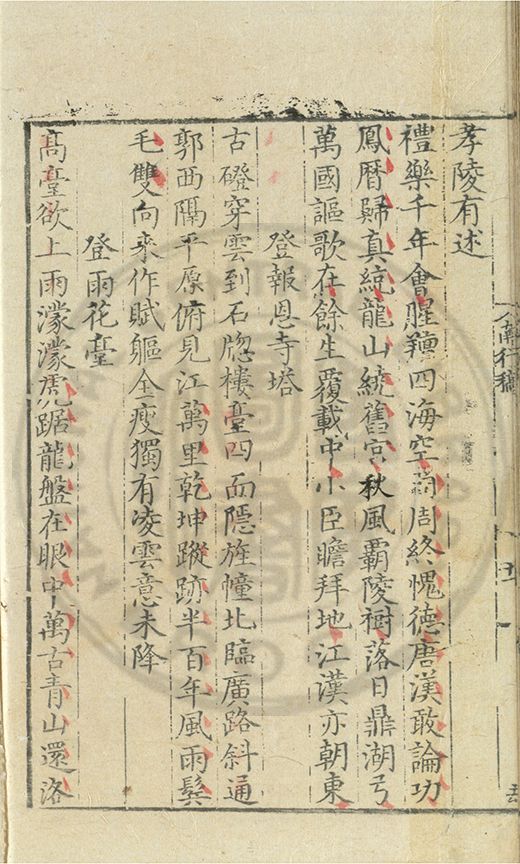 南行稿
孝陵有述
禮樂千年會腥羶四海空商周終愧德唐漢敢論功
鳳曆歸真統龍山繞舊宮秋風覇陵樹落日鼎湖弓
萬國謳歌在餘生覆載中小臣瞻拜地江漢亦朝東
登報恩寺塔
古磴穿雲到石牕樓臺四面隱旌幢北臨廣路斜通
郭西隔平原俯見江萬里乾坤蹤跡半百年風雨鬂
毛雙向來作賦軀全瘦獨有凌雲意未降
登雨花臺
髙臺欲上雨濛濛虎踞龍盤在眼中萬古青山還洛